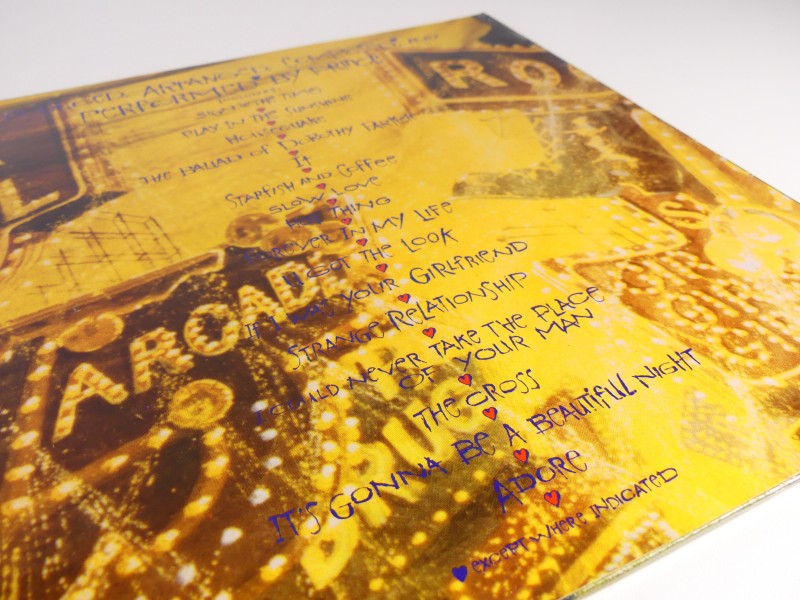 PRODUCED, ARRANGED, COMPOSED AND
PERFORMED BY PRINCE
SIGN O THE TIMES
PLAY IN THE SUNSHINE
HOUSEQUAKE
THE BALLAD OF DOROTHY PARKER
IT
STARFISH AND COFFEE
SLOW LOVE
HOT THING
FOREVER IN MY LIFE
U GOT THE LOOK
IF I WAS YOUR GIRLFRIEND
STRANGE RELATIONSHIP
I COULD NEVER TAKE THE PLACE
OF YOUR MAN
THE CROSS
IT'S GONNA BE A BEAUTIFUL NIGHT
ADORE
EXCEPT WHERE INDICATED
ARCADE
DRUGS
GIRLS
GIRLS